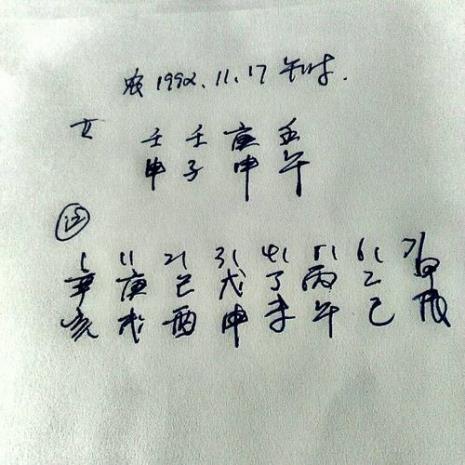 农1992.11.17 午时.
壬 壬 庚 壬
申 子 申 午
运
1 11 21 31 41 51 61 71
辛 庚 己 戊 丁 丙 乙 甲
亥 戌 酉 申 未 午 巳 辰